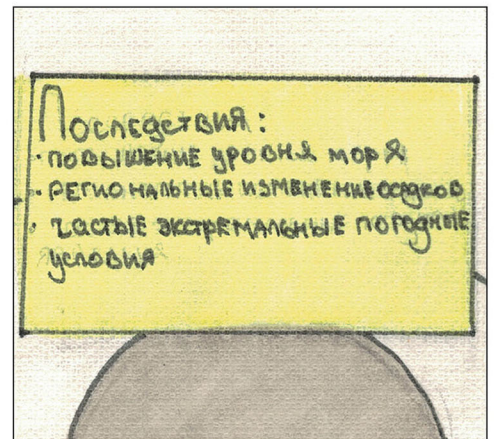 Последствия:
· повышение уровня моря
· региональные изменение осадков
· частые экстремальные погодные
условия